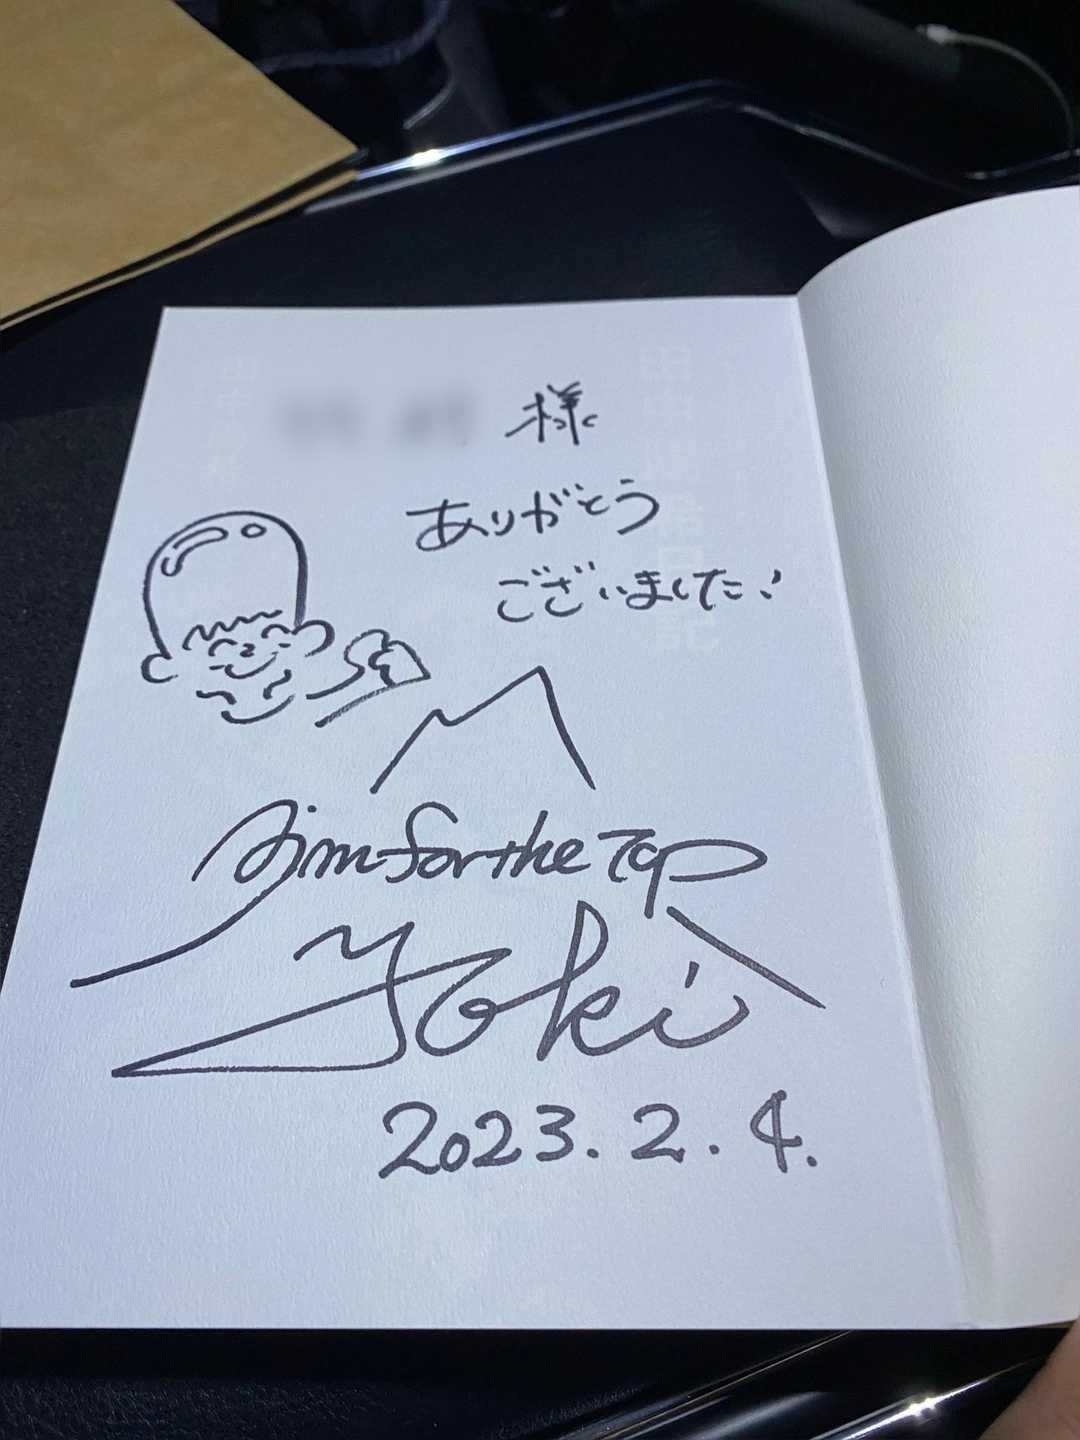 様
ありがとう
ございました!
Aim for the Top
Yoki
2023.2.4.